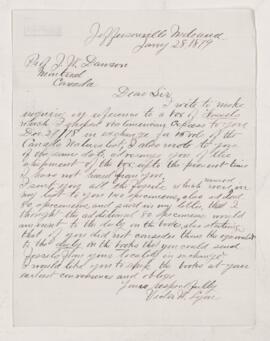 Jeffersonville Indiana
Jany 28 1879
Prof J. W. Dawson
Montreal
Canada
Dear Sir,
I write to make
inquiry in reference to a box of fossils
which I shipped via American Express to you
Dec 28/78 in exchange for vol of the
Canada Naturalist, I also wrote to you
of the same date, advising you of the
shipment of the box until the present time
I have not heard from you.
I sent you all the fossils which were in
my list to you two specimens, also added
80 specimens and said in my letter, that I
thought the additional 80 specimens would
amount to the duty on the books, also stating
that if you did not consider them the equivalent
to the duty on the books that you could send
fossils from your locality in exchange
I would like you to send the books at your
earliest convenience and oblige
Yours respectfully
Victor W. Lyon